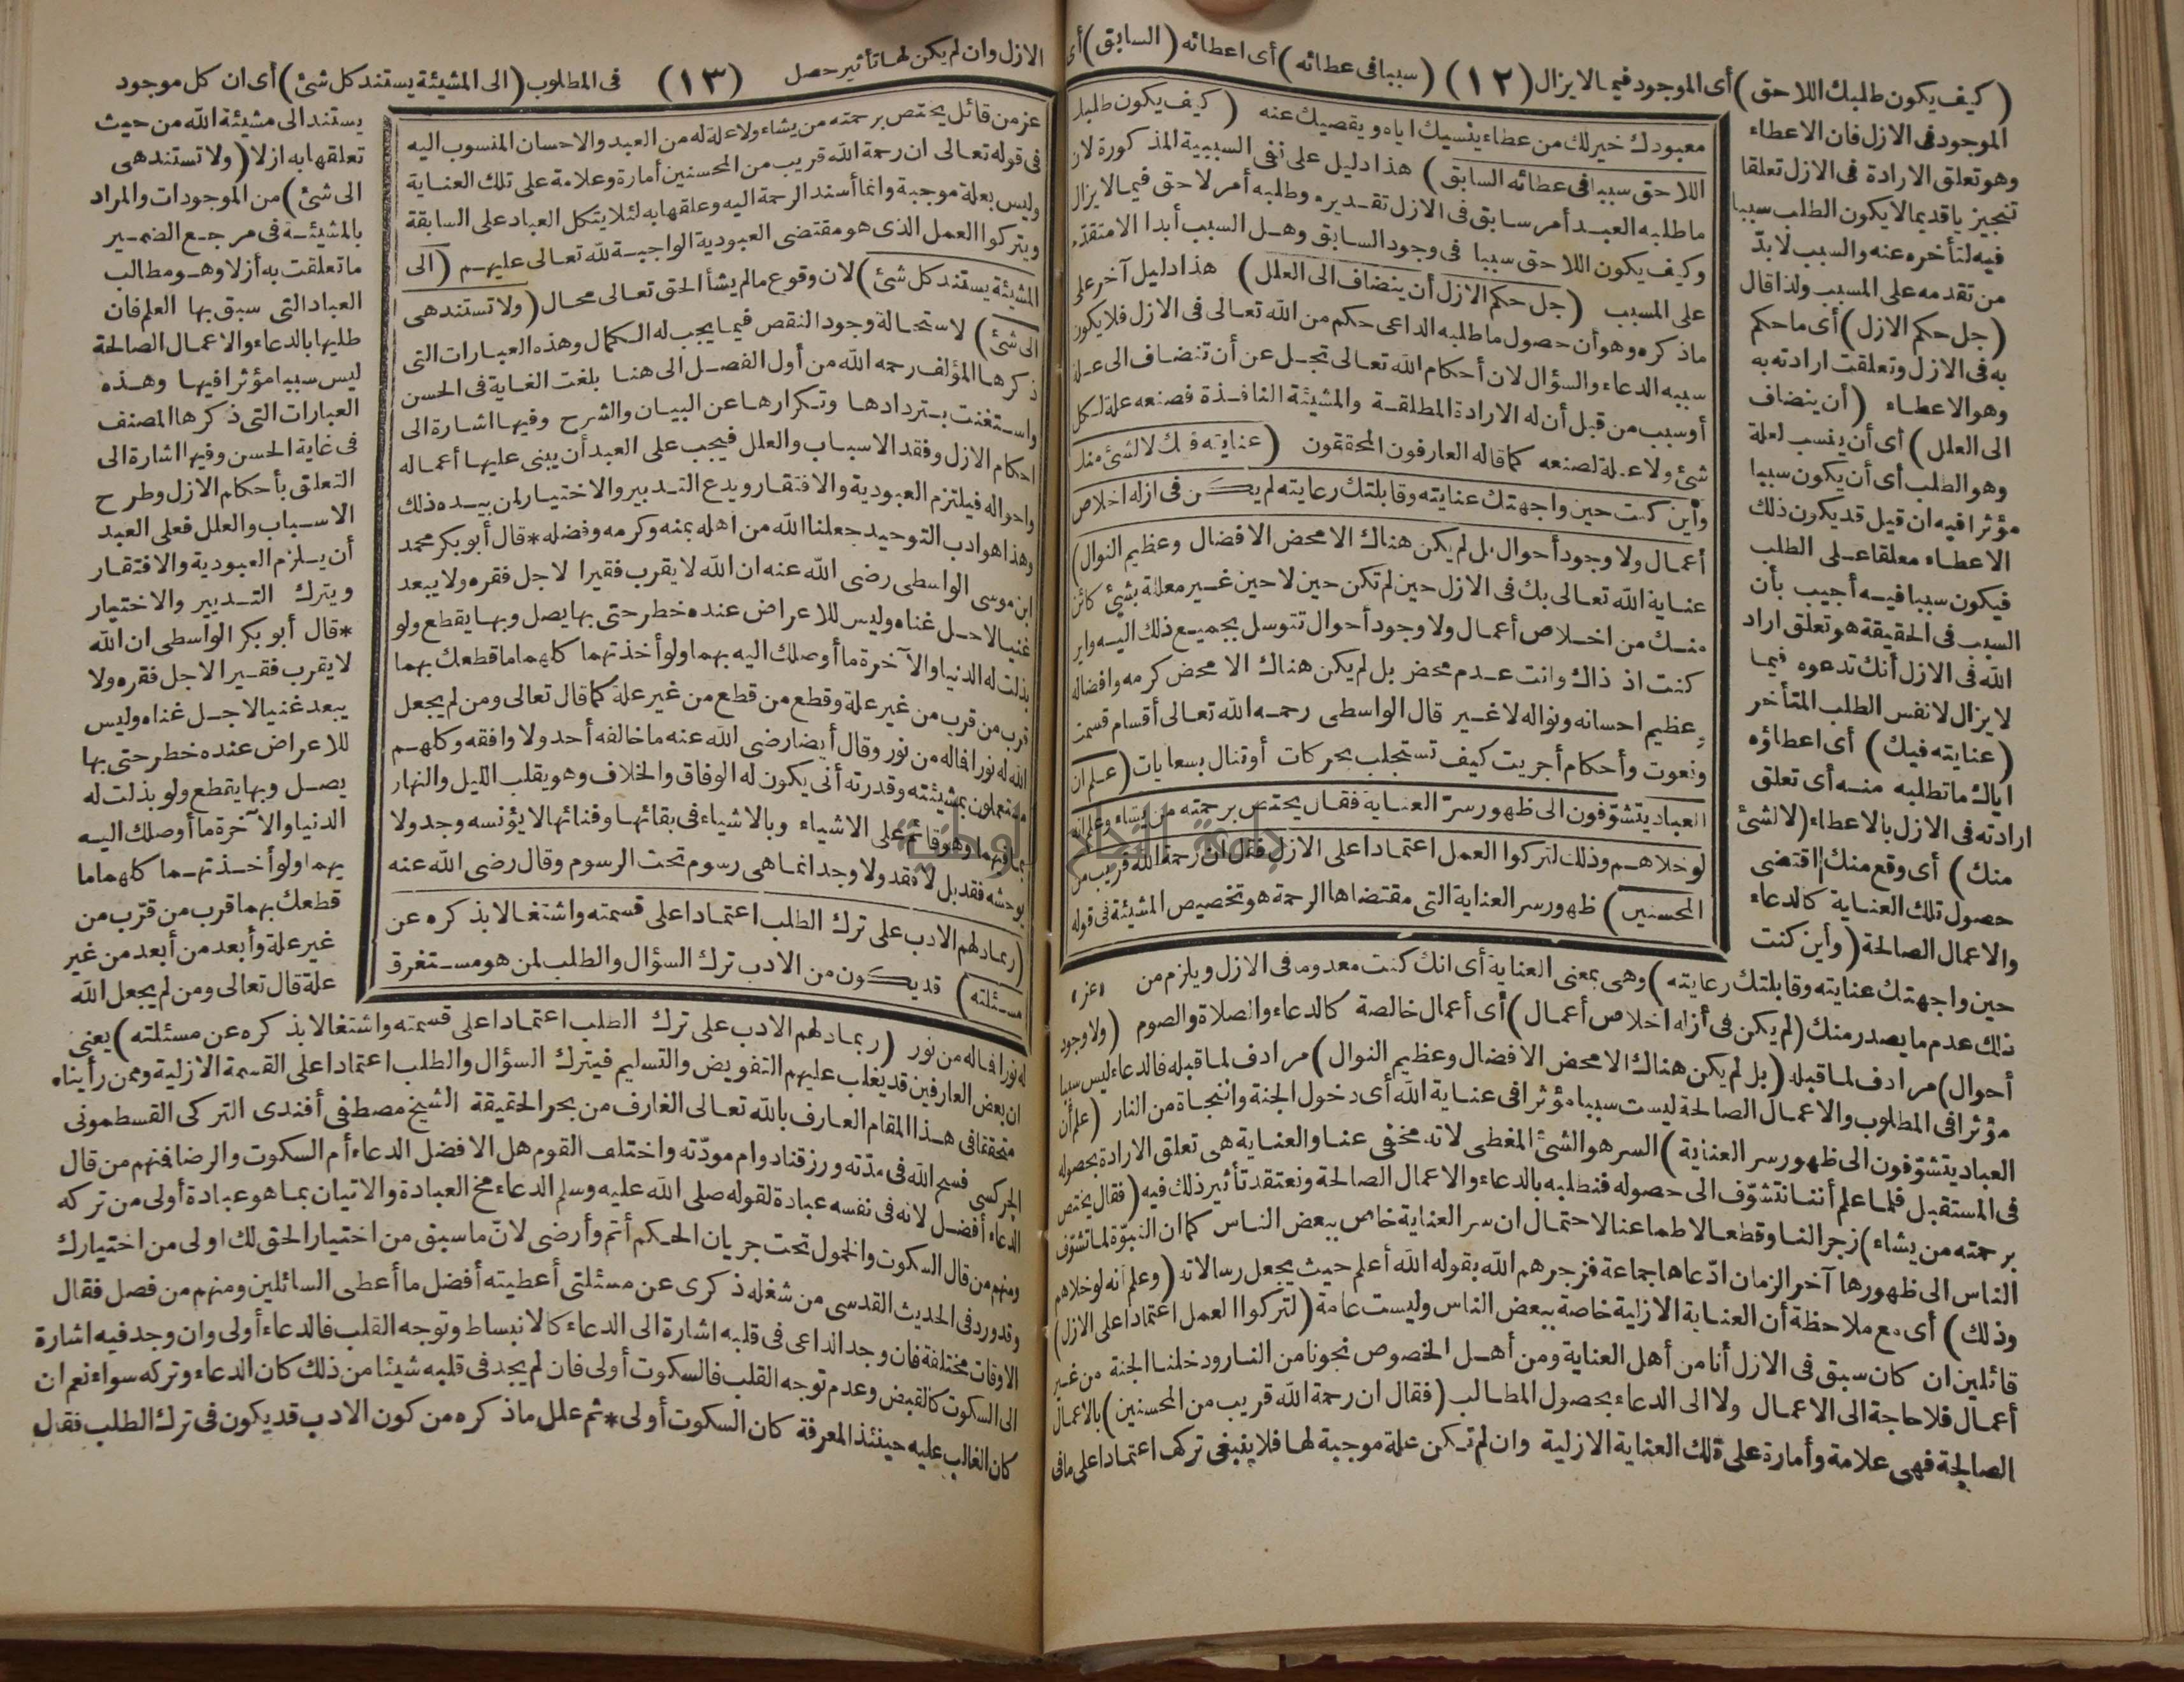 (كيف يكون طلبك اللاحق) أى الموجود فيما لا يزال (١٢) (سببا فى عطائه) أى اعطائه (السابق) أى
الموجود فى الازل فان الاعطاء
وهو تعلق الارادة فى الازل تعلقا
تنجيزيا قديما لا يكون الطلب سببا
فيه لتأخره عنه والسبب لا بدّ
من تقدمه على المسبب ولذا قال
(جل حكم الازل) أى ما حكم
به فى الازل وتعلقت ارادته به
وهو الاعطاء (أن ينضاف
الى العلل) أى أن ينسب لعلة
وهو الطلب أى أن يكون سببا
مؤثرا فيه ان قيل قد يكون ذلك
الاعطاء معلقا على الطلب
فيكون سببا فيه أجيب بأن
السبب فى الحقيقة هو تعلق اراد
الله فى الازل أنك تدعوه فيما
لا يزال لا نفس الطلب المتأخر
(عنايته فيك) أى اعطاؤه
اياك ما تطلبه منه أى تعلق
ارادته فى الازل بالاعطاء (لا لشئ
منك) أى وقع منك اقتضى
حصول تلك العناية كالدعاء
والاعمال الصالحة (وأين كنت
معبودك خير لك من عطاء ينسيك اياه ويقصيك عنه (كيف يكون طلبك
اللاحق سببا فى عطائه السابق) هذا دليل على نفى السببية المذكورة لان
ما طلبه العبد أمر سابق فى الازل تقديره وطلبه أمر لاحق فيما لا يزال
وكيف يكون اللاحق سببا فى وجود السابق وهل السبب أبدا الا متقدم
على المسبب (جل حكم الازل أن ينضاف الى العلل) هذا دليل آخر على
ما ذكره وهو أن حصول ما طلبه الداعى حكم من الله تعالى فى الازل فلا يكون
سببه الدعاء والسؤال لان أحكام الله تعالى تجل عن أن تنضاف الى علة
أو سبب من قبل أن له الارادة المطلقة والمشيئة النافذة فصنعه علة لكل
شئ ولا علة لصنعه كما قاله العارفون المحققون (عنايته فيك لا لشئ منك
وأين كنت حين واجهتك عنايته وقابلتك رعايته لم يكن فى ازله اخلاص
أعمال ولا وجود أحوال بل لم يكن هناك الا محض الافضال وعظيم النوال)
عناية الله تعالى بك فى الازل حين لم تكن حين لا حين غير معللة بشئ كائن
منك من اخلاص أعمال ولا وجود أحوال تتوسل بجميع ذلك اليه واين
كنت اذ ذاك وانت عدم محض بل لم يكن هناك الا محض كرمه وافضاله
وعظيم احسانه ونواله لا غير قال الواسطى رحمه الله تعالى أقسام قسمت
ونعوت وأحكام أجريت كيف تستجلب بحركات أو تنال بسعايات (علم ان
العباد يتشوّفون الى ظهور سرّ العناية فقال يختص برحمته من يشاء وعلم انه
لو خلاهم وذلك لتركوا العمل اعتمادا على الازل فقال ان رحمة الله قريب من
المحسنين) ظهور سر العناية التى مقتضاها الرحمة هو تخصيص المشيئة فى قوله
عز
حين واجهتك عنايته وقابلتك رعايته) وهى بمعنى العناية أى انك كنت معدوما فى الازل ويلزم من
ذلك عدم ما يصدر منك (لم يكن فى أزله اخلاص أعمال) أى أعمال خالصة كالدعاء والصلاة والصوم (ولا وجود
أحوال) مرادف لما قبله (بل لم يكن هناك الا محض الافضال وعظيم النوال) مرادف لما قبله فالدعاء ليس سببا
مؤثرا فى المطلوب والاعمال الصالحة ليست سببا مؤثرا فى عناية الله أى دخول الجنة والنجاة من النار (علم أن
العباد يتشوّفون الى ظهور سر العناية) السر هو الشئ المغطى لانه مخفى عنا والعناية هى تعلق الارادة بحصوله
فى المستقبل فلما علم أننا نتشوّف الى حصوله فنطلبه بالدعاء والاعمال الصالحة ونعتقد تأثير ذلك فيه (فقال يختص
برحمته من يشاء) زجرا لنا وقطعا لاطماعنا لاحتمال ان سر العناية خاص ببعض الناس كما ان النبوّة لما تشوّف
الناس الى ظهورها آخر الزمان ادّعاها جماعة فزجرهم الله بقوله الله أعلم حيث يجعل رسالاته (وعلم انه لو خلاهم
وذلك) أى مع ملاحظة أن العناية الازلية خاصة ببعض الناس وليست عامة (لتركوا العمل اعتمادا على الازل)
قائلين ان كان سبق فى الازل أنا من أهل العناية ومن أهل الخصوص نجونا من النار ودخلنا الجنة من غير
أعمال فلا حاجة الى الاعمال ولا الى الدعاء بحصول المطالب (فقال ان رحمة الله قريب من المحسنين) بالاعمال
الصالحة فهى علامة وأمارة على تلك العناية الازلية وان لم تكن علة موجبة لها فلا ينبغى تركها اعتمادا على ما فى
الازل وان لم يكن لها تأثير حصل (١٣) فى المطلوب (الى المشيئة يستند كل شئ) أى ان كل موجود
عز من قائل يختص برحمته من يشاء ولا علة له من العبد والاحسان المنسوب اليه
فى قوله تعالى ان رحمة الله قريب من المحسنين أمارة وعلامة على تلك العناية
وليس بعلة موجبة وانما أسند الرحمة اليه وعلقها به لئلا يتكل العباد على السابقة
ويتركوا العمل الذى هو مقتضى العبودية الواجبة لله تعالى عليهم (الى
المشيئة يستند كل شئ) لان وقوع ما لم يشأ الحق تعالى محال (ولا تستند هى
الى شئ) لاستحالة وجود النقص فيما يجب له الكمال وهذه العبارات التى
ذكرها المؤلف رحمه الله من أول الفصل الى هنا بلغت الغاية فى الحسن
واستغنت بتردادها وتكرارها عن البيان والشرح وفيها اشارة الى
احكام الازل وفقد الاسباب والعلل فيجب على العبد أن يبنى عليها أعماله
واحواله فيلتزم العبودية والافتقار ويدع التدبير والاختيار لمن بيده ذلك
وهذا هو ادب التوحيد جعلنا الله من أهله بمنه وكرمه وفضله * قال أبو بكر محمد
ابن موسى الواسطى رضى الله عنه ان الله لا يقرب فقيرا لاجل فقره ولا يبعد
غنيا لاجل غناه وليس للاعراض عنده خطر حتى بها يصل وبها يقطع ولو
بذلت له الدنيا والآخرة ما أوصلك اليه بهما ولو أخذتهما كلهما ما قطعك بهما
قرب من قرب من غير علة وقطع من قطع من غير علة كما قال تعالى ومن لم يجعل
الله له نورا فما له من نور وقال أيضا رضى الله عنه ما خالفه أحد ولا وافقه وكلهم
مستعملون بمشيئته وقدرته أنى يكون له الوفاق والخلاف وهو يقلب الليل والنهار
بما فيهما وهو قائم على الاشياء وبالاشياء فى بقائها وفنائها لا يؤنسه وجد ولا
يوحشه فقد بل لا فقد ولا وجد انما هى رسوم تحت الرسوم وقال رضى الله عنه
(ربما دلهم الادب على ترك الطلب اعتمادا على قسمته واشتغالا بذكره عن
مسئلته) قد يكون من الادب ترك السؤال والطلب لمن هو مستغرق
يستند الى مشيئة الله من حيث
تعلقها به ازلا (ولا تستند هى
الى شئ) من الموجودات والمراد
بالمشيئة فى مرجع الضمير
ما تعلقت به أزلا وهو مطالب
العباد التى سبق بها العلم فان
طلبها بالدعاء والاعمال الصالحة
ليس سببا مؤثرا فيها وهذه
العبارات التى ذكرها المصنف
فى غاية الحسن وفيها اشارة الى
التعلق بأحكام الازل وطرح
الاسباب والعلل فعلى العبد
أن يلزم العبودية والافتقار
ويترك التدبير والاختيار
* قال أبو بكر الواسطى ان الله
لا يقرب فقيرا لاجل فقره ولا
يبعد غنيا لاجل غناه وليس
للاعراض عنده خطر حتى بها
يصل وبها يقطع ولو بذلت له
الدنيا والآخرة ما أوصلك اليه
بهما ولو أخذتهما كلهما ما
قطعك بهما قرب من قرّب من
غير علة وأبعد من أبعد من غير
علة قال تعالى ومن لم يجعل الله
له نورا فما له من نور (ربما دلهم الادب على ترك الطلب اعتمادا على قسمته واشتغالا بذكره عن مسئلته) يعنى
ان بعض العارفين قد يغلب عليهم التفويض والتسليم فيترك السؤال والطلب اعتمادا على القسمة الازلية وممن رأيناه
متحققا فى هذا المقام العارف بالله تعالى الغارف من بحر الحقيقة الشيخ مصطفى أفندى التركى القسطمونى
الجركسى فسح الله فى مدّته ورزقنا دوام مودّته واختلف القوم هل الافضل الدعاء أم السكوت والرضا فمنهم من قال
الدعاء أفضل لانه فى نفسه عبادة لقوله صلى الله عليه وسلم الدعاء مخ العبادة والاتيان بما هو عبادة أولى من تركه
ومنهم من قال السكوت والخمول تحت جريان الحكم أتم وأرضى لانّ ما سبق من اختيار الحق لك اولى من اختيارك
وقد ورد فى الحديث القدسى من شغله ذكرى عن مسئلتى أعطيته أفضل ما أعطى السائلين ومنهم من فصل فقال
الاوقات مختلفة فان وجد الداعى فى قلبه اشارة الى الدعاء كالانبساط وتوجه القلب فالدعاء أولى وان وجد فيه اشارة
الى السكوت كالقبض وعدم توجه القلب فالسكوت أولى فان لم يجد فى قلبه شيئا من ذلك كان الدعاء وتركه سواء نعم ان
كان الغالب عليه حينئذ المعرفة كان السكوت أولى * ثم علل ما ذكره من كون الادب قد يكون فى ترك الطلب فقال